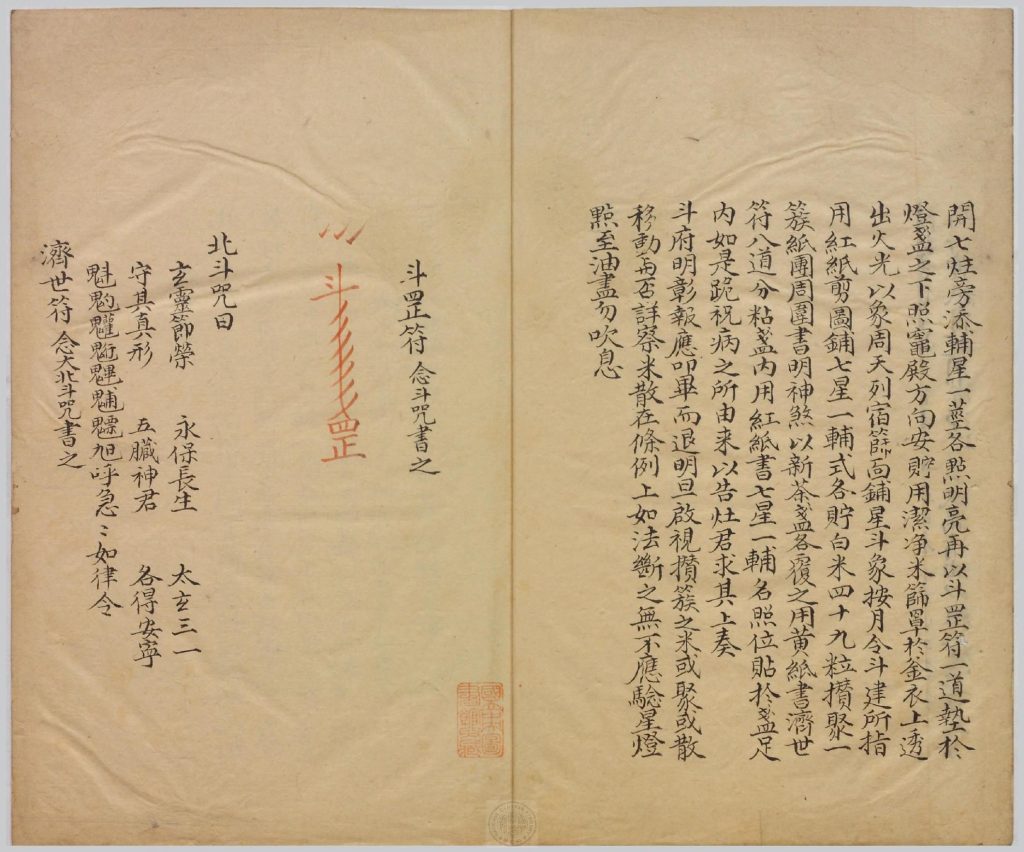 開七炷旁添輔星一莖各點明亮再以斗罡符一道墊於
燈盞之下照竈殿方向安貯用潔净米篩罩於釜衣上透
出火光以象周天列宿篩面鋪星斗象按月令斗建所指
用紅紙剪圖鋪七星一輔式各貯白米四十九粒攢聚一
簇紙團周圍書明神煞以新茶盞各覆之用黄紙書濟世
符八道分粘盞内用紅紙書七星一輔名照位貼於盞足
内如是跪祝病之所由来以告灶君求其上奏
斗府明彰報應叩畢而退明旦啟視攢簇之米或聚或散
移動與否詳察米散在條例上如法斷之無不應驗星燈
㸃至油盡勿吹息
斗罡符 念斗咒書之
斗 罡
北斗咒曰
玄靈節榮 永保長生 太玄三一
守其真形 五臟神君 各得安寧
魁䰢魓䰨旭呼急〻如律令
濟世符 念大北斗咒書之